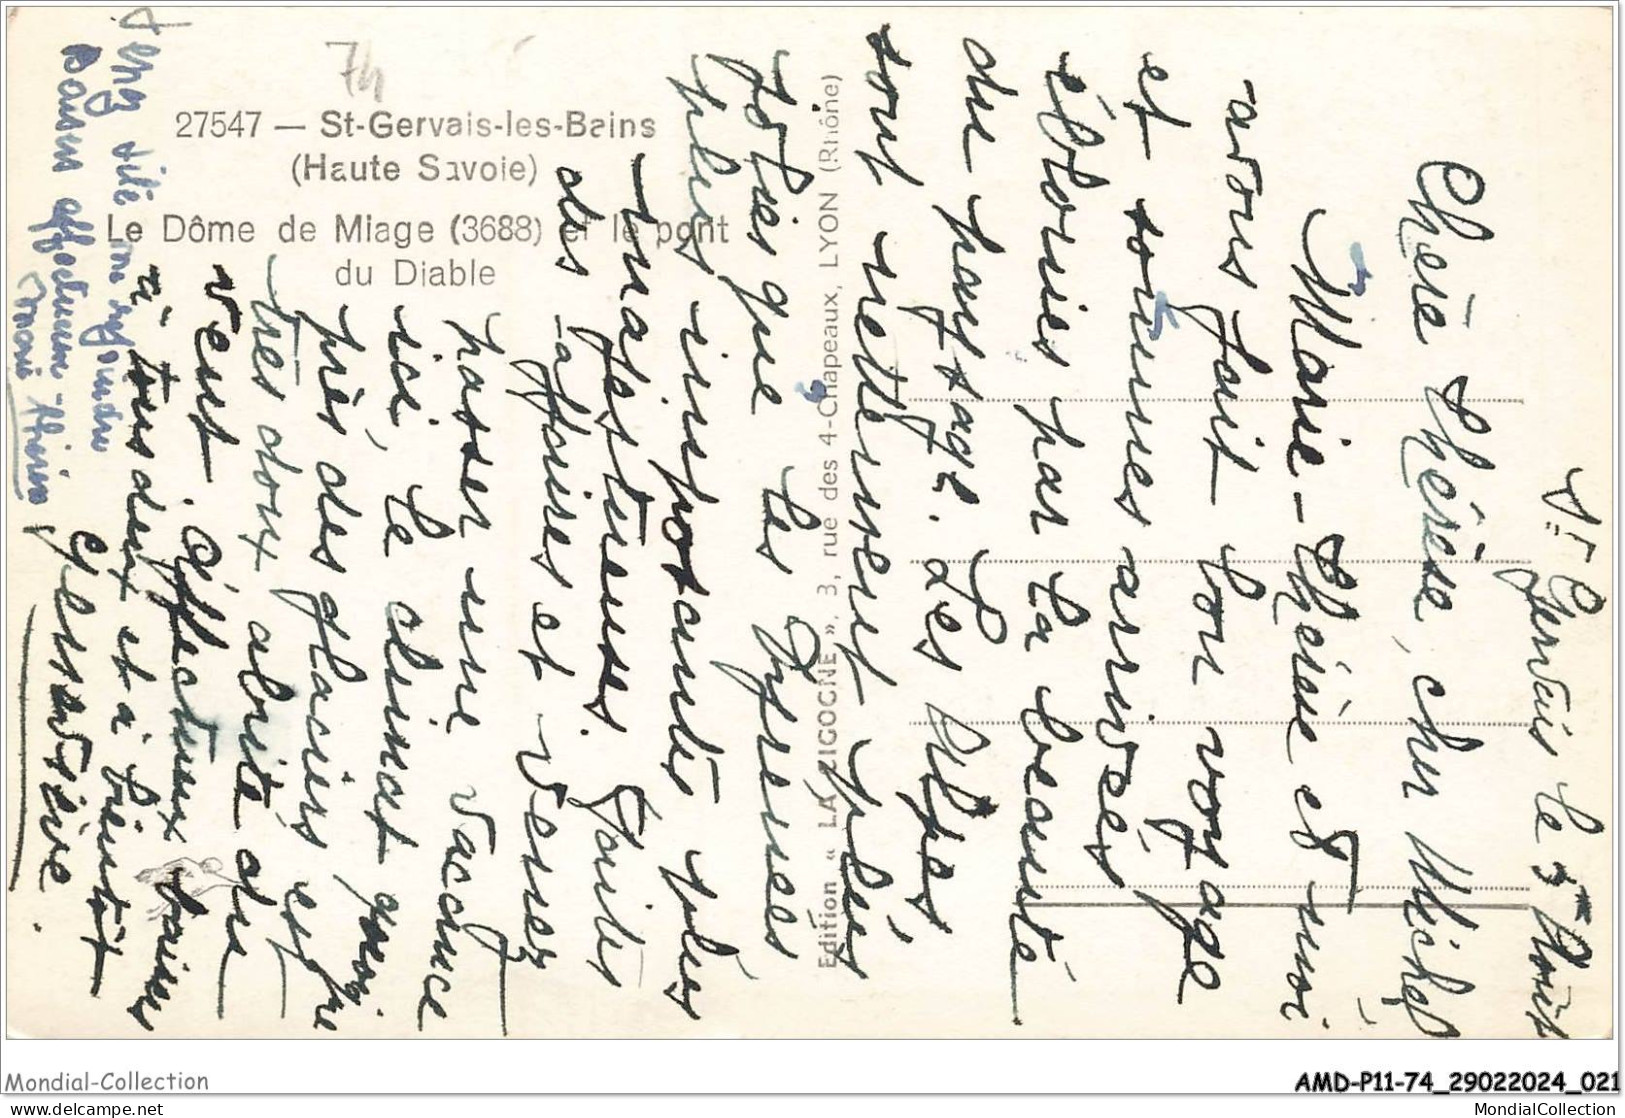 74
27547 — St-Gervais-les-Bains
(Haute Savoie)
Le Dôme de Miage (3688) et le pont
du Diable
Edition « LA CIGOGNE ». 3, rue des 4-Chapeaux, LYON (Rhône)
St Gervais le 3 Août
Chère Thérèse, cher Michel
Marie-Thérèse et moi
avons fait bon voyage
et sommes arrivés
éblouies par la beauté
du paysage. Les Alpes
sont nettement plus
jolies que les Pyrénées
plus imposantes plus
majestueuses. Faites
des affaires et venez
passer une vacance
ici, le climat quoique
près des glaciers est
très doux abrité du
vent. Affectueux baisers
à tous deux et à bientôt
Venez vite me rejoindre
Baisers affectueux
Mondial-Collection
AMD-P11-74_29022024_021
www.delcampe.net
MondialCollection